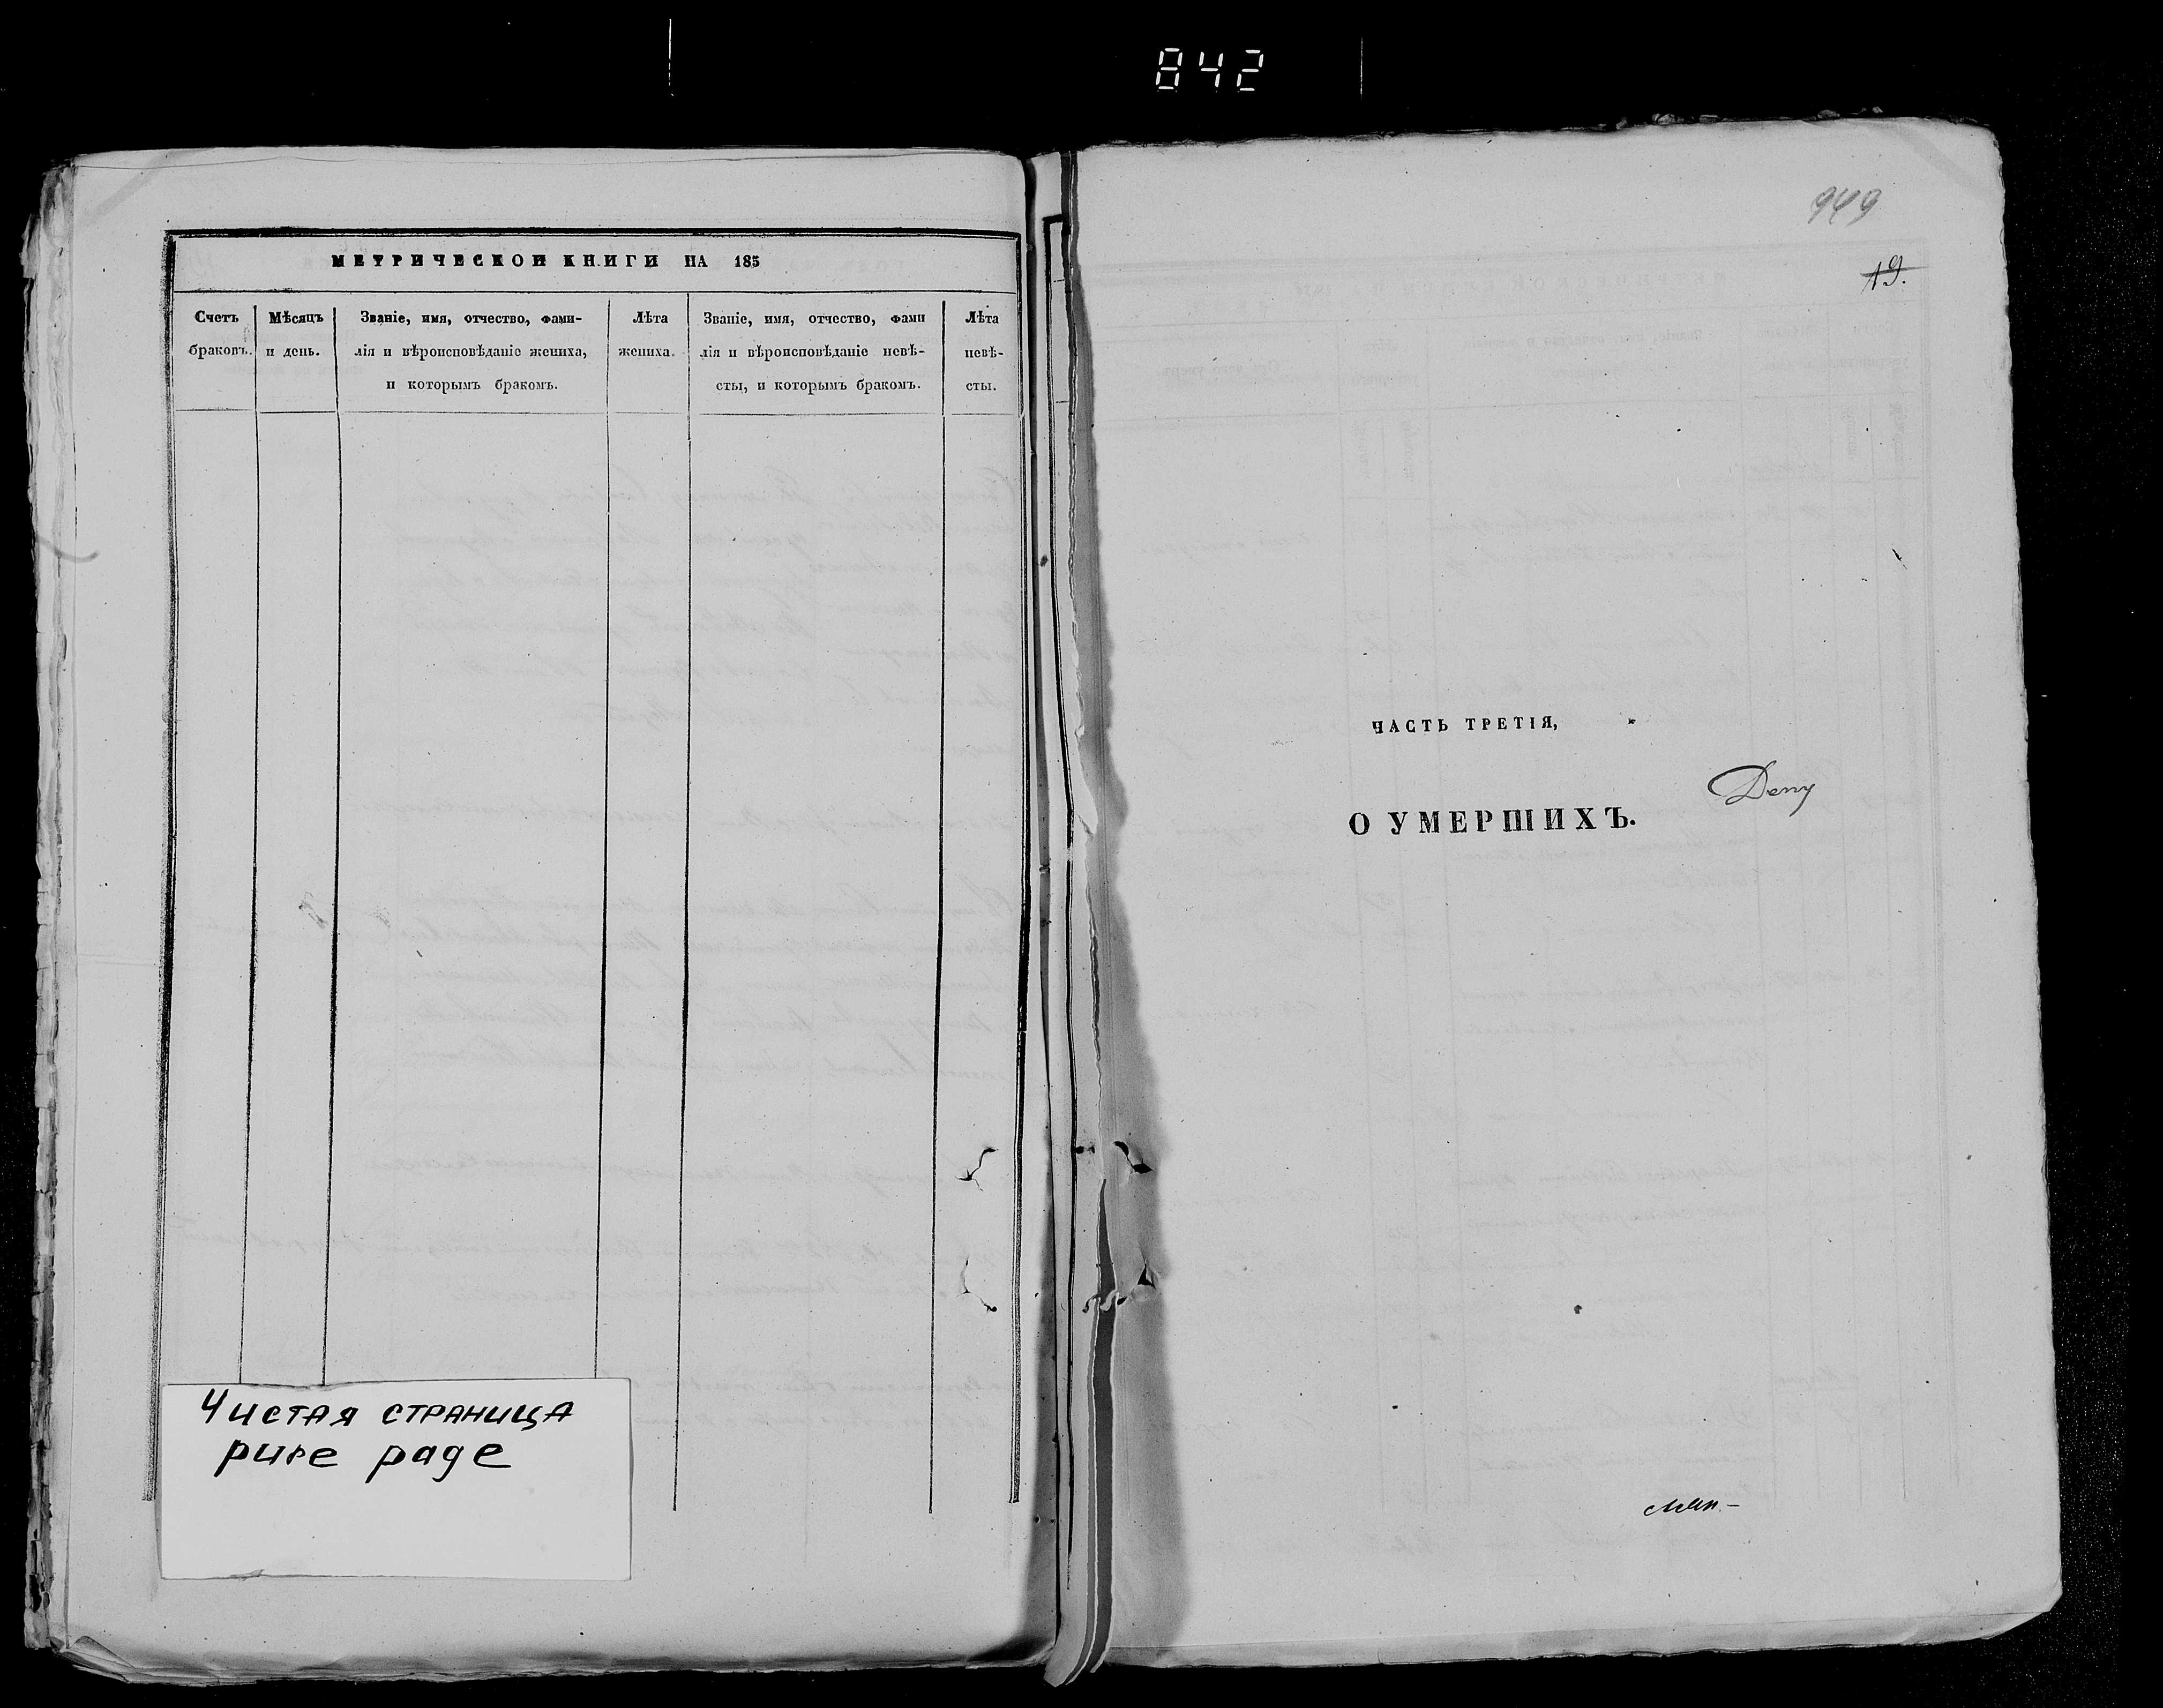 842
МЕТРИЧЕСКОЙ КНИГИ НА 185
Счетъ браковъ.
Мѣсяцъ и день.
Званіе, имя, отчество, фами-
лія и вѣроисповѣданіе жениха,
и которымъ бракомъ.
Лѣта жениха.
Званіе, имя, отчество, фами
лія и вѣроисповѣданіе невѣ-
сты, и которымъ бракомъ.
Лѣта невѣ-
сты.
Чистая страница
pure page
949
19.
ЧАСТЬ ТРЕТІЯ,
О УМЕРШИХЪ.